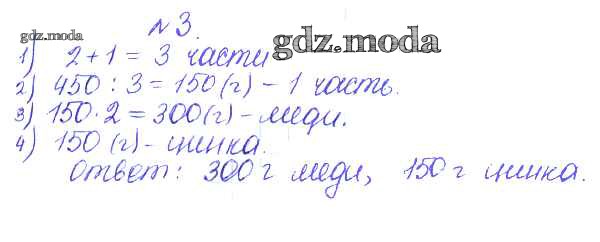 №3.
gdz.moda
gdz.moda
1) 2+1 = 3 части
2) 450 : 3 = 150(г) - 1 часть.
3) 150·2 = 300(г) - меди.
4) 150 (г) - цинка.
Ответ: 300 г меди, 150 г цинка.